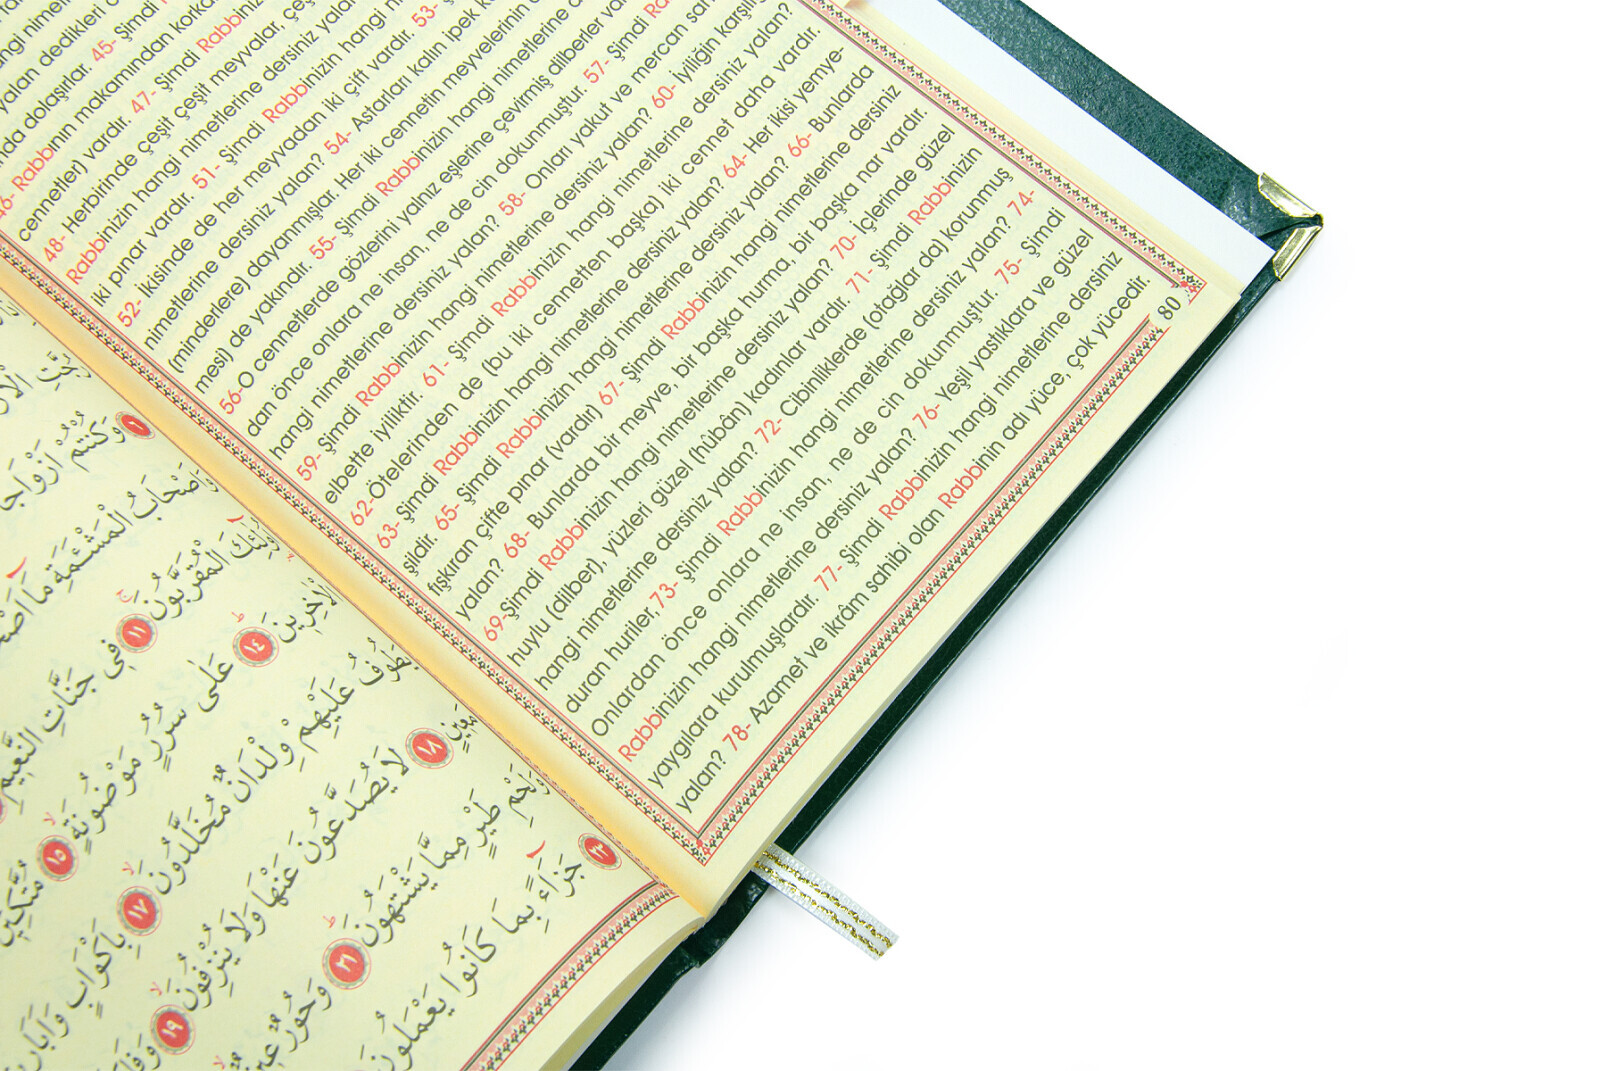 yalan dedikleri
nda dolaşırlar. 45- Şimdi
46- Rabbinin makamından korka
cennetler) vardır. 47- Şimdi Rabbiniz
48- Herbirinde çeşit çeşit meyvalar, çeş
Rabbinizin hangi nimetlerine dersiniz yalan
iki pınar vardır. 51- Şimdi Rabbinizin hangi n
52- İkisinde de her meyvadan iki çift vardır. 53- Ş
nimetlerine dersiniz yalan? 54- Astarları kalın ipek k
(minderlere) dayanmışlar. Her iki cennetin meyvelerinin
mesi) de yakındır. 55- Şimdi Rabbinizin hangi nimetlerine
56-O cennetlerde gözlerini yalnız eşlerine çevirmiş dilberler var
dan önce onlara ne insan, ne de cin dokunmuştur. 57- Şimdi Ra
hangi nimetlerine dersiniz yalan? 58- Onları yakut ve mercan san
59- Şimdi Rabbinizin hangi nimetlerine dersiniz yalan? 60- İyiliğin karşılığ
elbette iyiliktir. 61- Şimdi Rabbinizin hangi nimetlerine dersiniz yalan?
62-Ötelerinden de (bu iki cennetten başka) iki cennet daha vardır.
63- Şimdi Rabbinizin hangi nimetlerine dersiniz yalan? 64- Her ikisi yemye-
şildir. 65- Şimdi Rabbinizin hangi nimetlerine dersiniz yalan? 66- Bunlarda
fışkıran çifte pınar (vardır) 67- Şimdi Rabbinizin hangi nimetlerine dersiniz
yalan? 68- Bunlarda bir meyve, bir başka hurma, bir başka nar vardır.
69-Şimdi Rabbinizin hangi nimetlerine dersiniz yalan? 70- İçlerinde güzel
huylu (dilber), yüzleri güzel (hûbân) kadınlar vardır. 71- Şimdi Rabbinizin
hangi nimetlerine dersiniz yalan? 72- Cibinliklerde (otağlar da) korunmuş
duran huriler,73- Şimdi Rabbinizin hangi nimetlerine dersiniz yalan? 74-
Onlardan önce onlara ne insan, ne de cin dokunmuştur. 75- Şimdi
Rabbinizin hangi nimetlerine dersiniz yalan? 76- Yeşil yastıklara ve güzel
yaygılara kurulmuşlardır. 77- Şimdi Rabbinizin hangi nimetlerine dersiniz
yalan? 78- Azamet ve ikrâm sahibi olan Rabbinin adı yüce, çok yücedir.
80
وَكُنْتُمْ اَزْوَاجًا
وَاَصْحَابُ الْمَشْئَمَةِ مَا اَصْحَا
الْمُقَرَّبُونَ ١١ فِي جَنَّاتِ النَّعِيمِ
الْاٰخِرِينَ ١٤ عَلٰى سُرُرٍ مَوْضُونَةٍ ١٥ مُتَّكِئِينَ
يَطُوفُ عَلَيْهِمْ وِلْدَانٌ مُخَلَّدُونَ ١٧ بِاَكْوَابٍ وَاَبَارِيقَ
مَعِينٍ ١٨ لَا يُصَدَّعُونَ عَنْهَا وَلَا يُنْزِفُونَ ١٩ وَفَاكِ
وَلَحْمِ طَيْرٍ مِمَّا يَشْتَهُونَ ٢١ وَحُورٌ عِينٌ
٢٣ جَزَاءً بِمَا كَانُوا يَعْمَلُونَ